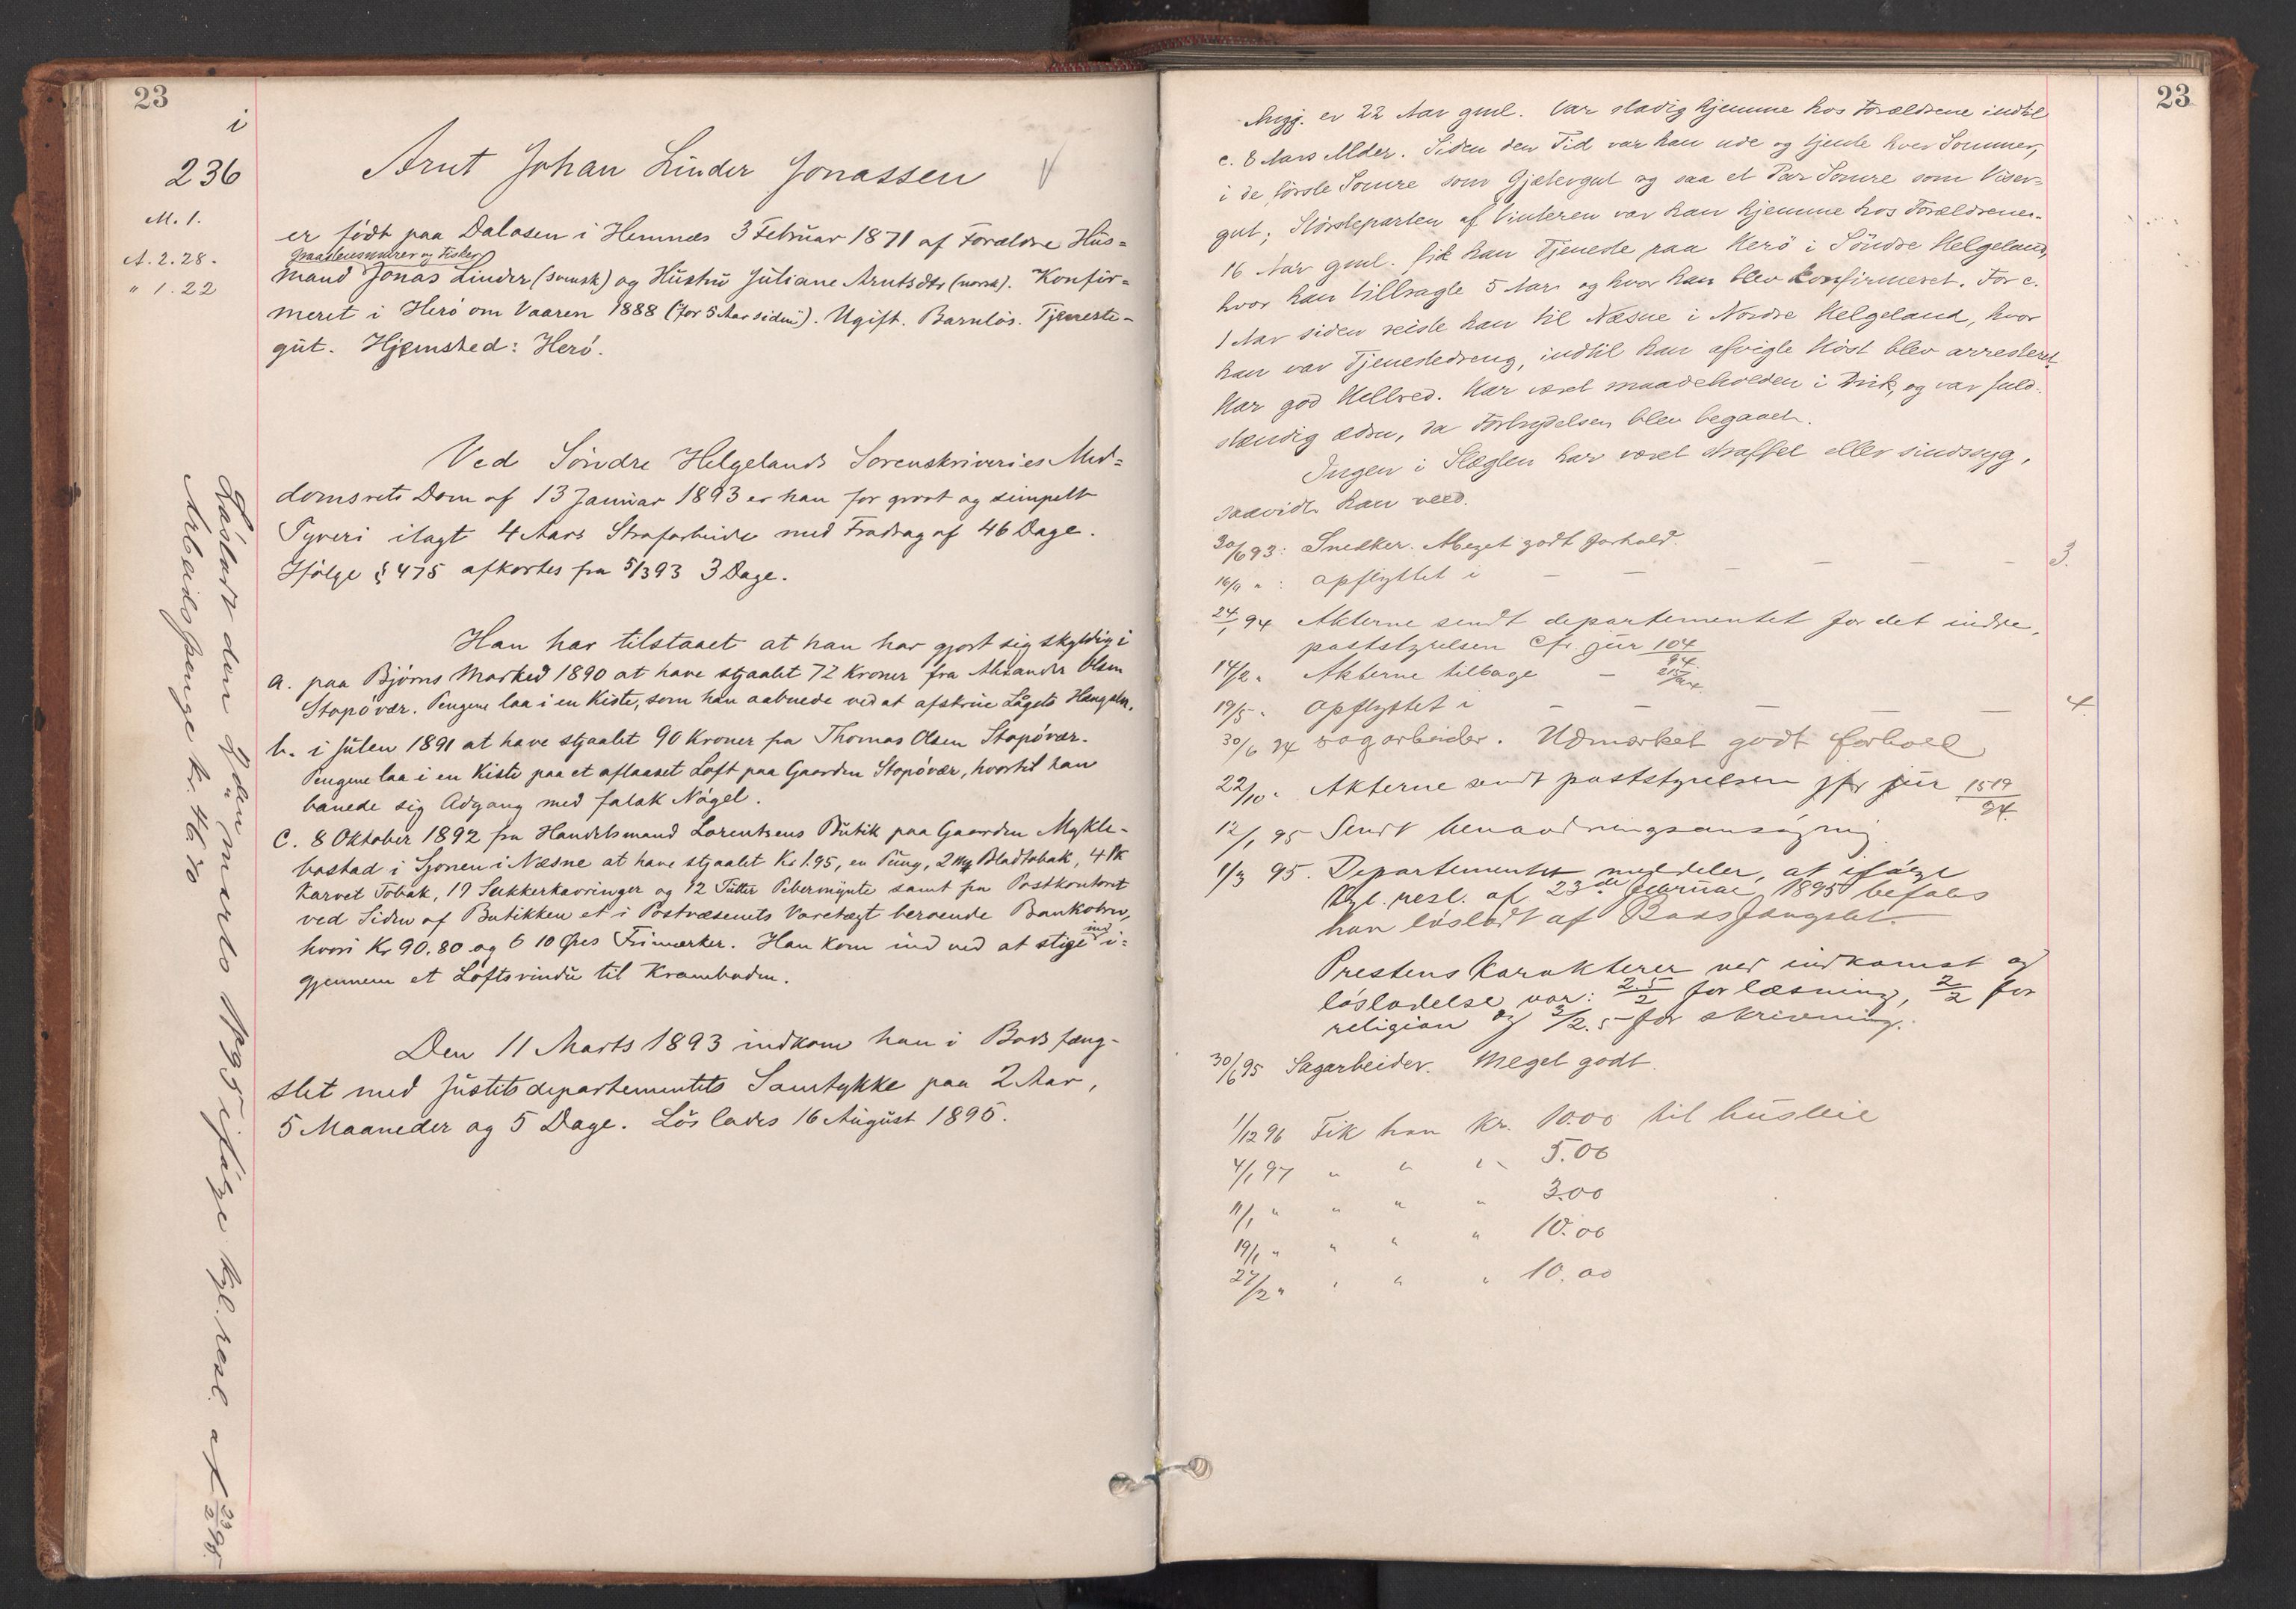 23
i
236
M. 1.
A. 2.28.
" 1.22
Arnt Johan Linder Jonassen
er født paa Dalosen i Hemnæs 3 Februar 1871 af Forældre Hus=
Graastensmurer og Fisker
mand Jonas Linder (svensk) og Hustru Juliane Arntsdtr (norsk). Konfir=
meret i Herö om Vaaren 1888 ("for 5 Aar siden"). Ugift. Barnlös. Tjeneste-
gut. Hjemsted: Herö.
Ved Söndre Helgelands Sorenskriveries Med=
domsrets Dom af 13 Januar 1893 er han for grovt og simpelt
Tyveri ilagt 4 Aars Strafarbeide med Fradrag af 46 Dage.
Ifölge § 475 afkortes fra 5/3 93 3 Dage.
Han har tilstaaet at han har gjort sig skyldig i
a. paa Bjørns Marked 1890 at have stjaalet 72 Kroner fra Alexander Olsen
Stopövær. Pengene laa i en Kiste, som han aabnede ved at afskrue Lågets Hængsler.
b. i Julen 1891 at have stjaalet 90 Kroner fra Thomas Olsen Stopövær.
Pengene laa i en Kiste paa et aflaaset Loft paa Gaarden Stopövær, hvortil han
banede sig Adgang med falsk Nögel.
C. 8 Oktober 1892 fra Handelsmand Lorentzens Butik paa Gaarden Mykle-
bostad i Sjonen i Næsne at have stjaalet Kr 1.95, en Pung, 2 Bladtobak, 4 Pk
Karvet Tobak, 17 Sukkerkavringer og 12 Tutter Pebermynte samt fra Postkontoret
ved Siden af Butikken et i Postvæsenets Varetægt beroende Bankobrev,
hvori Kr 90.80 og 6 10 Øres Frimærker. Han kom ind ved at stige ind i=
gjennem et Loftsvindu til Kramboden.
Den 11 Marts 1893 indkom han i Bodsfæng-
slet med Justitsdepartementets Samtykke paa 2 Aar,
5 Maaneder og 5 Dage. Löslades 16 August 1895.
Lösladt den 9den marts 1895 ifölge kgl. resl. af 23/2 95.
Arbeidspenge kr. 46.70
23
Angj. er 22 Aar gml. Var stadig hjemme hos Forældrene indtil
c. 8 Aars Alder. Siden den Tid var han ude og tjente hver Sommer,
i de förste Somre som Gjætergut og saa et Par Somre som Viser=
gut; Störsteparten af Vinteren var han hjemme hos Forældrene.
16 Aar gml. fik han Tjeneste paa Herö i Söndre Helgeland,
hvor han tilbragte 5 Aar og hvor han blev konfirmeret. For c.
1 Aar siden reiste han til Næsne i Nordre Helgeland, hvor
han var Tjenestedreng, indtil han afvigte Höst blev arresteret.
Har god Helbred. Har været maadeholden i Drik, og var fuld-
stændig ædru, da Forbrydelsen blev begaaet.
Ingen i Slægten har været straffet eller sindssyg,
saavidt han veed.
30/6 93: Snedker. Meget godt forhold.
16/9 " : opflyttet i — — — — — — 3.
24/1 94 Akterne sendt departementet for det indre,
poststyrelsen cfr jur 104/94.
14/2 " Akterne tilbage —
19/5 " opflyttet i — — — — — 4.
30/6 94 sagarbeider. Udmærket godt forhold
22/10 " Akterne sendt poststyrelsen jfr jur 1519/94.
12/1 95 Sendt benaadningsansögning.
1/3 95. Departementet meddeler, at ifölge
Kgl. resl. af 23de februar 1895 befales
han lösladt af Bodsfængslet.
Prestens Karakterer ved indkomst og
lösladelse var: 2.5/2 for læsning, 2/2 for
religion og 3/2.5 for skrivning.
30/6 95 Sagarbeider. Meget godt.
1/12 96 Fik han Kr. 10.00 til husleie
4/1 97 " " " 5.00
11/1 " " " " 3.00
19/1 " " " " 10.00
27/2 " " " " 10.00